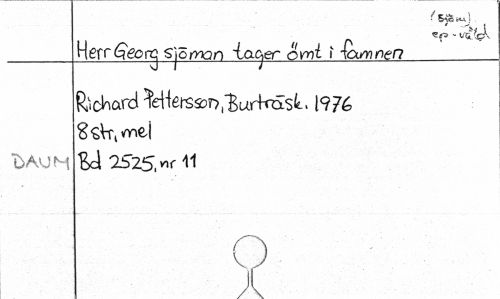 (sjöm)
ep-våld
Herr Georg sjöman tager ömt i famnen
Richard Pettersson, Burträsk. 1976
8 str, mel
DAUM Bd 2525, nr 11